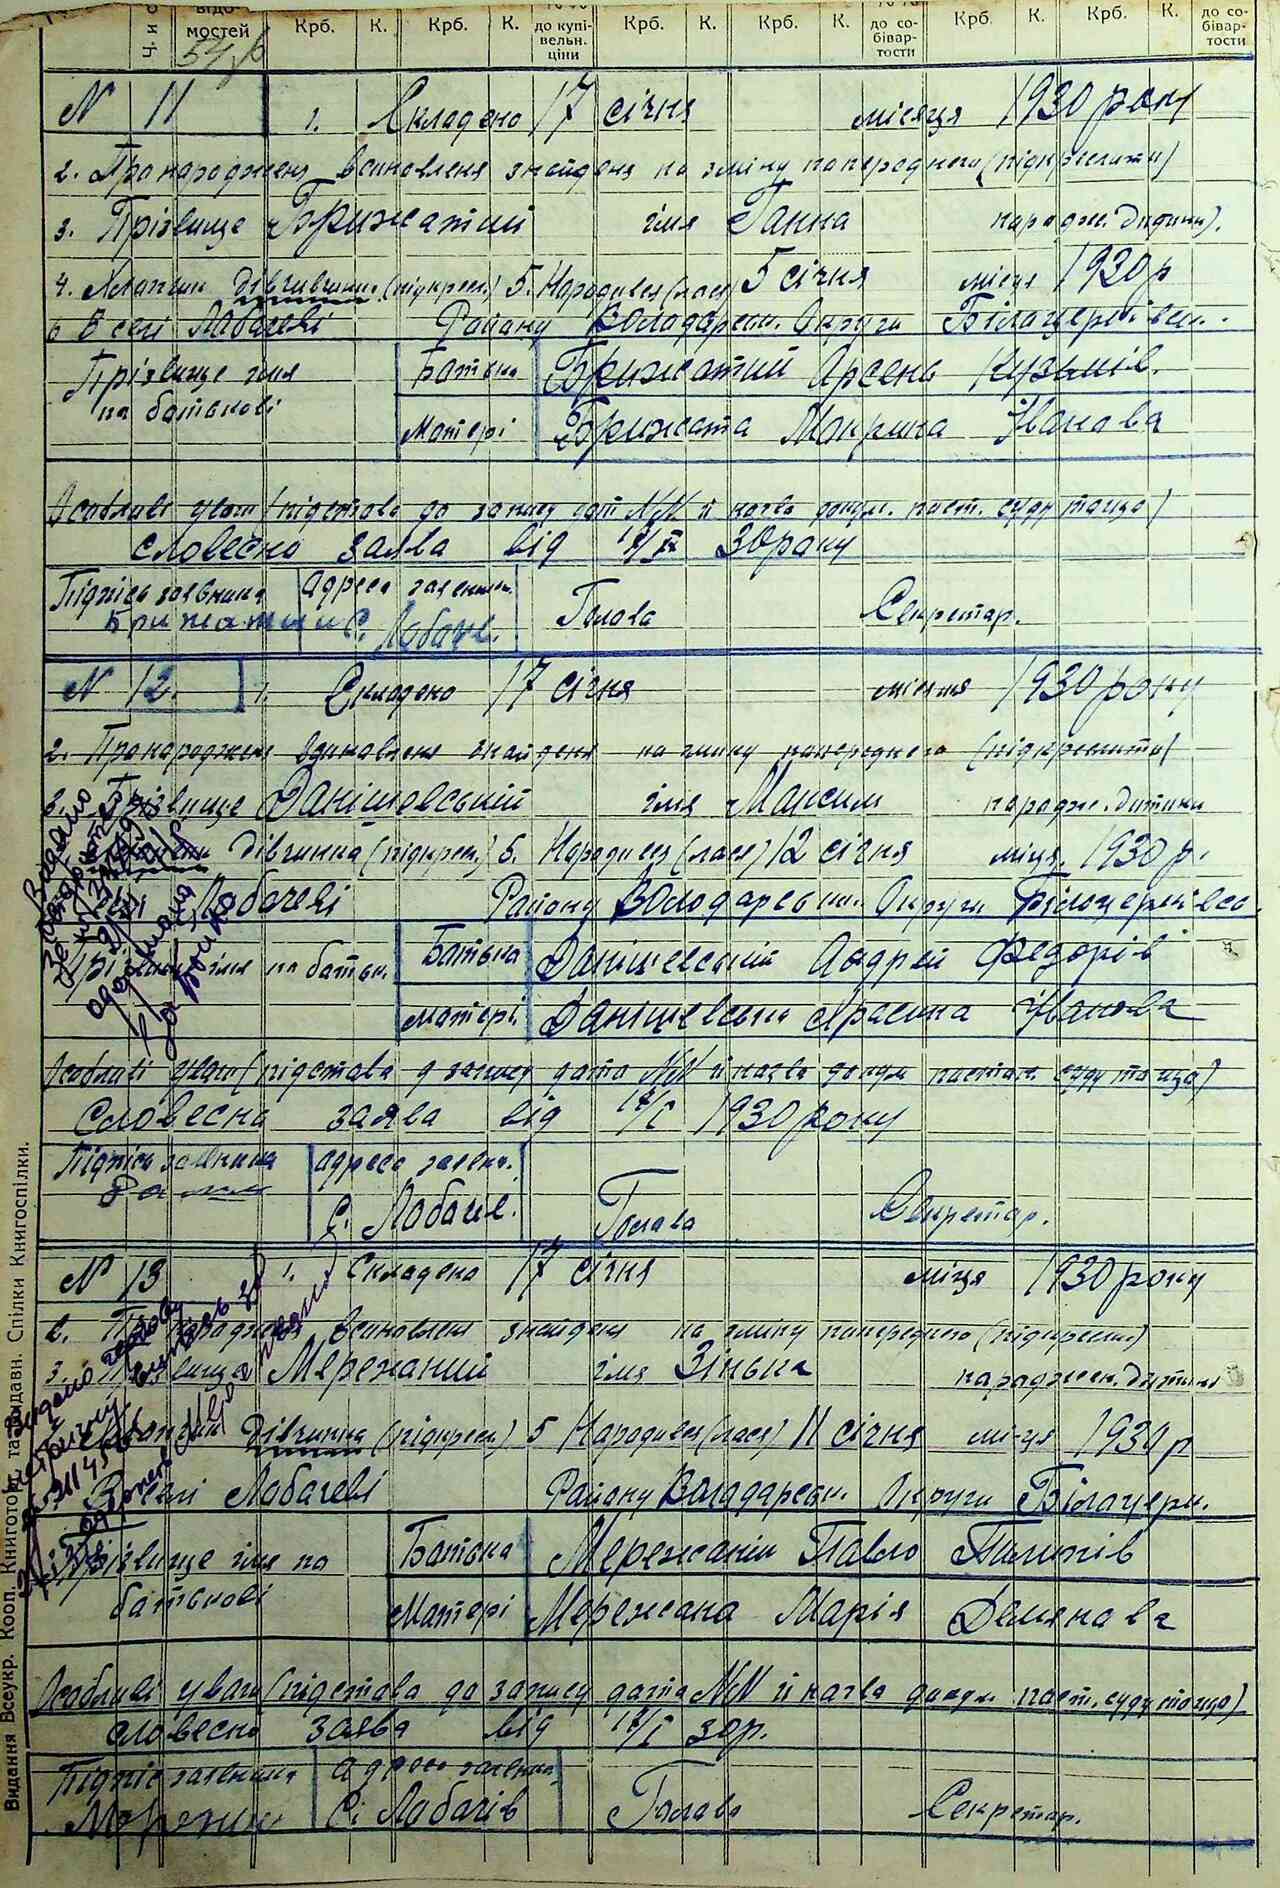 відо-
мостей Крб. К. Крб. К. до купі-вельн. ціни Крб. К. Крб. К. до со-бівар-тости Крб. К. Крб. К. до со-бівар-тости
N 11 1. Складено 17 січня місяця 1930 року
2. Про народження встановленя знайденя на зміну попереднего (підкреслити)
3. Прізвище Брижатий імя Ганна народж. дитини).
4. Хлопчик дівчинка (підкресл.) 5. Народився (лася) 5 січня місяця 1930 р
6 В селі Лобачеві Району Володарськ. Округи Білоцерківськ.
Прізвище імя Батька Брижатий Арсень Кузьмів.
по батькові
Матері Брижата Мокрина Іванова
Особливі уваги (підстава до запису дат NN й назва докум. пост. суду тощо)
словесно заява від 30 року
Підпись заявника Адреса заявник.
Брижатий С. Лобаче. Голова Секретар.
N 12. 1. Складено 17 січня місяця 1930 року
2. Про народження встановленя знайденя на зміну попереднего (підкреслити)
3. Прізвище Данішевський імя Максим народж. дитини
дівчинка (підкресл.) 5. Народився (лася) 12 січня місця. 1930 р.
Лобачеві Району Володарськ. Округи Білоцерківсь.
імя по батьк. Батька Данішевский Андрей Федорів
Матері Данішевська Ярасина Іванова
Особливі уваги (підстава д запису дата NN й назва докум постан. суду тощо)
Словесна заява від 17/I 1930 року
Підпись заявника Адреса заявн.
С. Лобачів. Голова Секретар.
N 13 1. Складено 17 січня місця 1930 року
2. Про народження встановленя знайденя на зміну попереднего (підкреслит)
3. Прізвище Мережаний імя Зінька народжен. дитини
Хлопчик дівчинка (підкресл.) 5 Народився (лася) 11 січня місця 1930 р
В селі Лобачеві Району Володарськ. Округи Білоцерк.
Прізвище імя по Батька Мережаний Павло Пилипів
батькові
Матері Мережана Марія Демянова
Особливі уваги (підстава до запису дата NN й назва докум пост. суду тощо)
словесно заява від 17/I 30р.
Підпис заявника Адреса заявник.
Сі Лобачів Голова Секретар.
Видання Всеукр. Кооп. Книготорг. та Видавн. Спілки Книгоспілки.